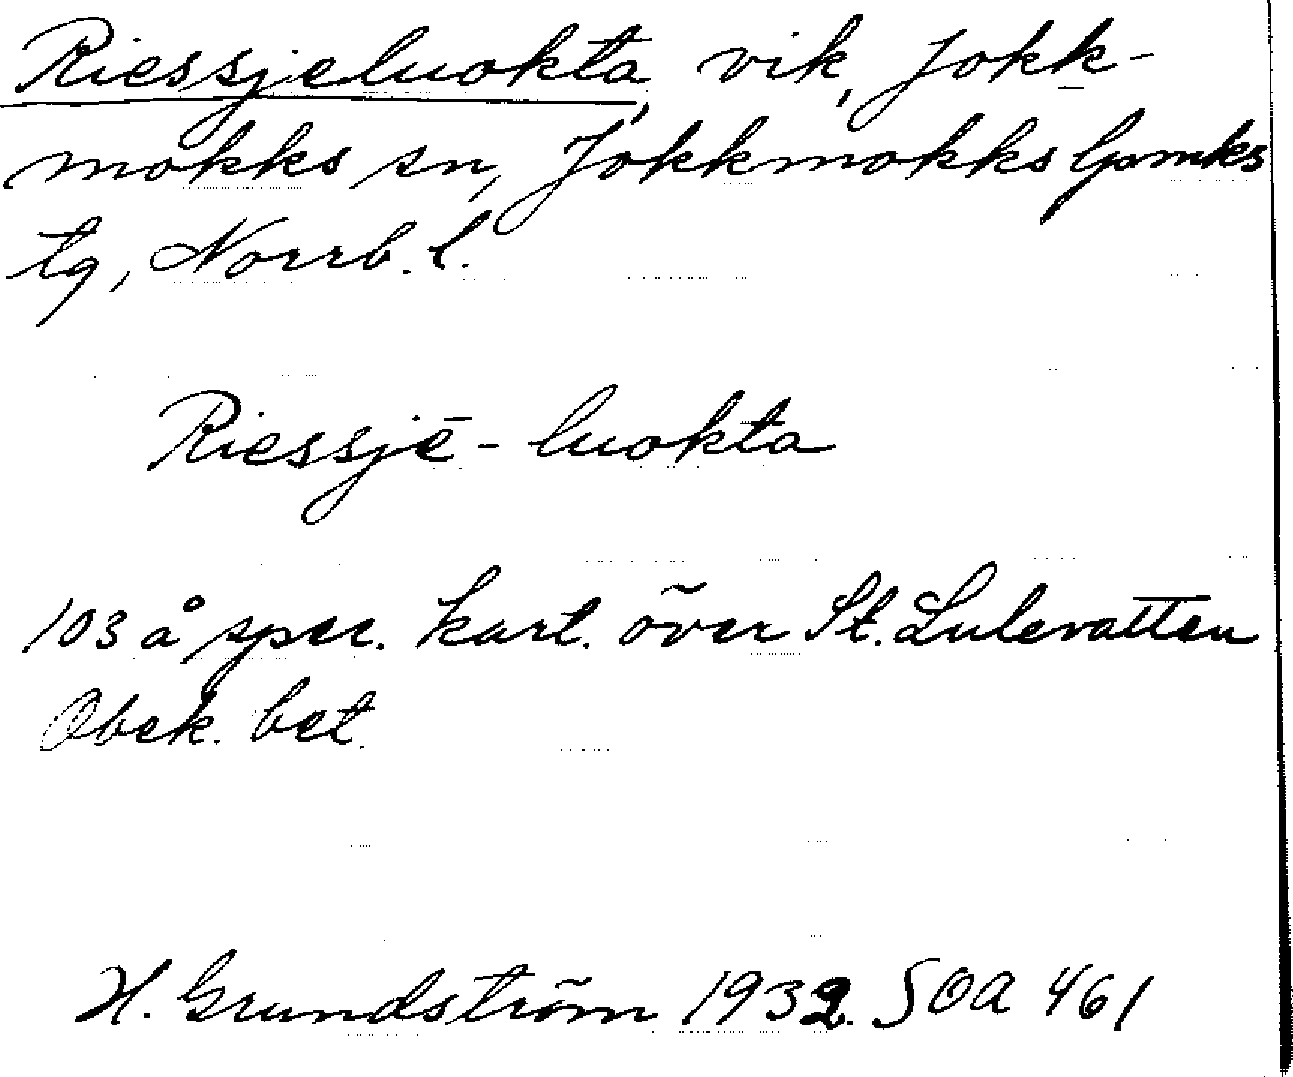 Riessjeluokta, vik, Jokk-
mokks sn, Jokkmokks lpmks
tg, Norrb. l.
Riessjē - luokta
103 å spec. kart. över St. Lulevatten
Obek. bet.
H. Grundström 1932. SOA 461